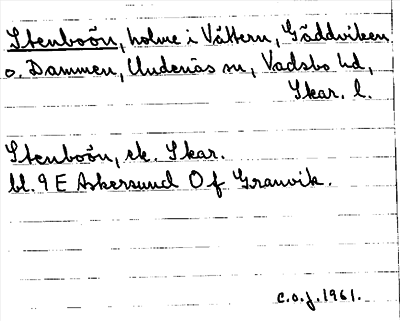 Stenboön, holme i Vättern, Gäddviken
o. Dammen, Undenäs sn, Vadsbo hd,
Skar. l.
Stenboön, ek. Skar.
bl. 9 E Askersund 0 f Granvik.
c.o.j. 1961.